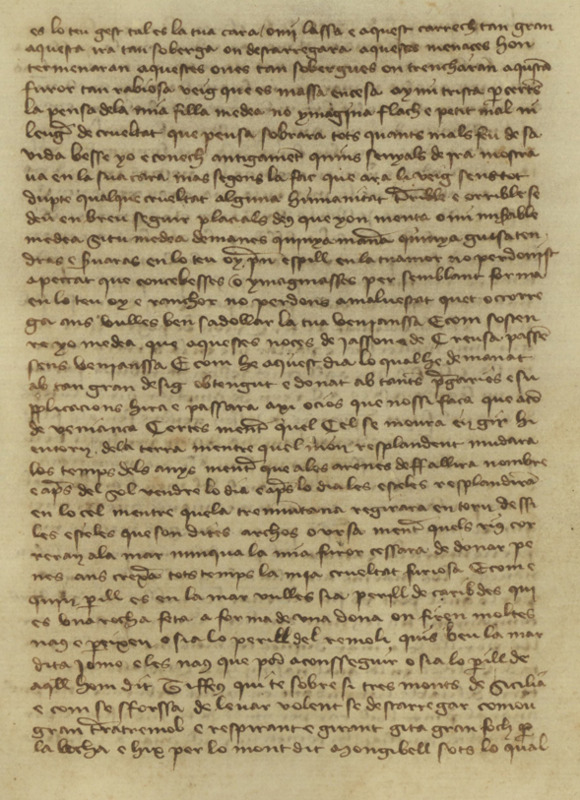 es lo teu gest tal es la tua cara / o mi lassa e aquest carrech tan gran
aquesta ira tan soberga on descarregara aquestes menaces hon
termenaran aquestes ones tan sobergues on trencharan aq̄sta
furor tan rabiosa veig que es massa encesa ay mi trista p certes
la pensa dela mia filla medea no ymagina flach e petit mal ni
leuger de crueltat que pensa sobrara tots quants mals feu de sa
vida be se yo e conech antigament quins senyals de ira mostra
ua en la sua cara mas segons la faç que ara la veig sens tot
dupte qualque crueltat alguna humanitat terrible e orrible se
deu en breu seguir placia als deus que yon menta o mi miserable
medea Si tu medea demanes quinya manera quinya guisa ten
dras e seruaras en lo teu oy pren espill en la tua mor no perdonist
a peccat que concebesses o ymaginasses per semblant forma
en lo teu oy e ranchor no perdons a maluestat quet ocorre
ga ans vulles ben sadollar la tua venianssa E com sosten
re yo medea que aquestes noces de iasson e de Creusa passen
sens venianssa E com he aquest dia lo qual he demanat
ab tan gran desig obtengut e donat ab tants pregaries e su
pplicacions hira e passara axi ocios que nos si faça que acte
de veniança Certes mentre quel Cel se moura en gir hi
entorn dela terra mentre quel mon resplandent mudara
los temps dels anys mentre que a les arenes deffallira nombre
e apres del sol vendra lo dia e apres lo dia les esteles resplandiran
en lo cel mentre que la tremuntana regirara en torn de ssi
les esteles que son dites archos o vrsa mentre quels rius cor
reran a la mar nunqua la mia furor cessara de donar pe
nes ans crexera tots temps la mia crueltat furiosa E com e
quiny perill es en la mar vulles sia perill de caribdes qui
es vna rocha feta a forma de vna dona on firen moltes
naus e perexen o sia lo perill del remoli quis beu la mar
dita iome e les naus que pot aconsseguir o sia lo perill de
aquell hom dit Tiffeus qui te sobre si tres monts de Sicilia
e com se sforssa de leuar volent se descarregar comou
gran terratremol e respirant e girant gita gran foch per
la bocha e hix per lo mont dit Mongibell sots lo qual